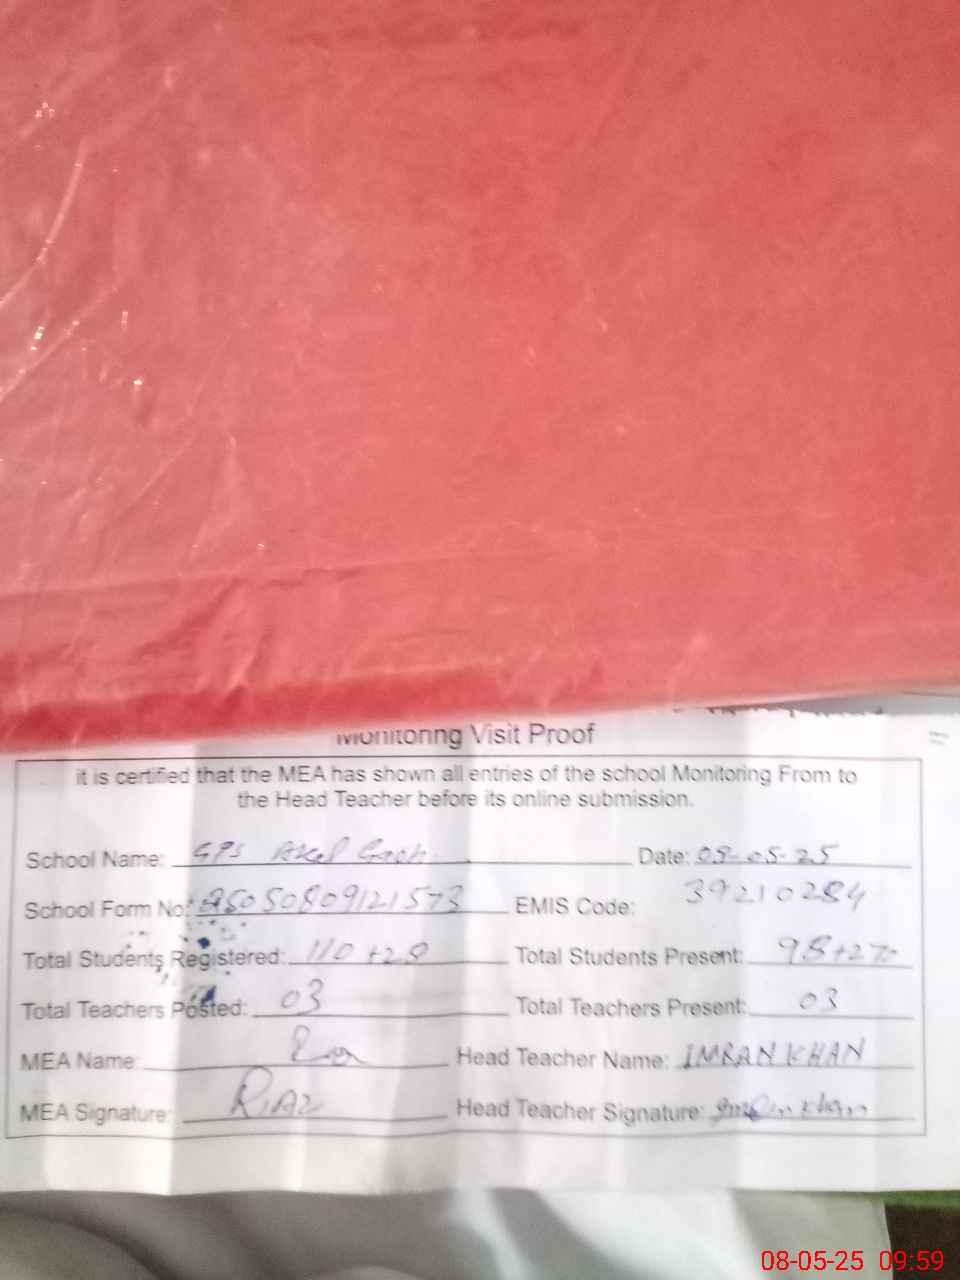 Monitoring Visit Proof
it is certified that the MEA has shown all entries of the school Monitoring From to
the Head Teacher before its online submission.
School Name: GPS Date: 08-05-25
School Form No: 50809121573 EMIS Code: 39210284
Total Students Registered: 110+28 Total Students Present: 98+27
Total Teachers Posted: 03 Total Teachers Present: 03
MEA Name: Head Teacher Name: IMRAN KHAN
MEA Signature: RIAZ Head Teacher Signature: Imran khan
08-05-25 09:59